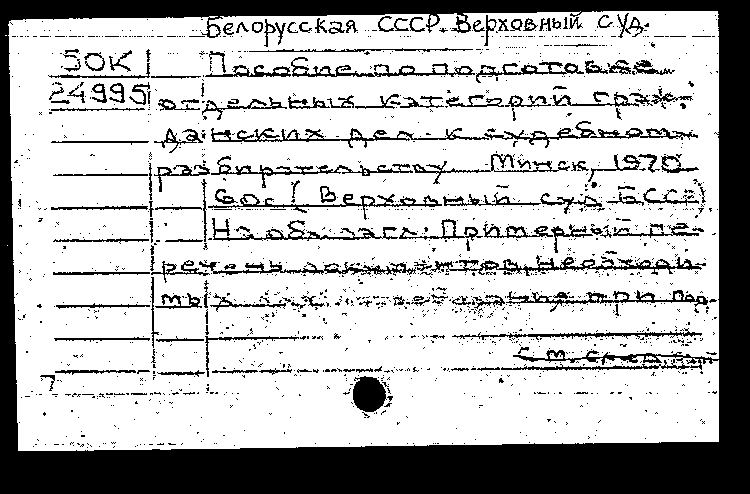 Белорусская СССР. Верховный суд.
50К Пособие по подготовке
24995 отдельных категорий граж-
данских дел к судебному
разбирательству. Минск, 1970
60с. ( Верховный суд БССР)
На обл. загл: Примерный пе-
речень документов, необходи-
мых при под-
См. след.
7